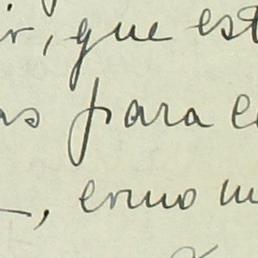 ir, que est
as para c
, como m